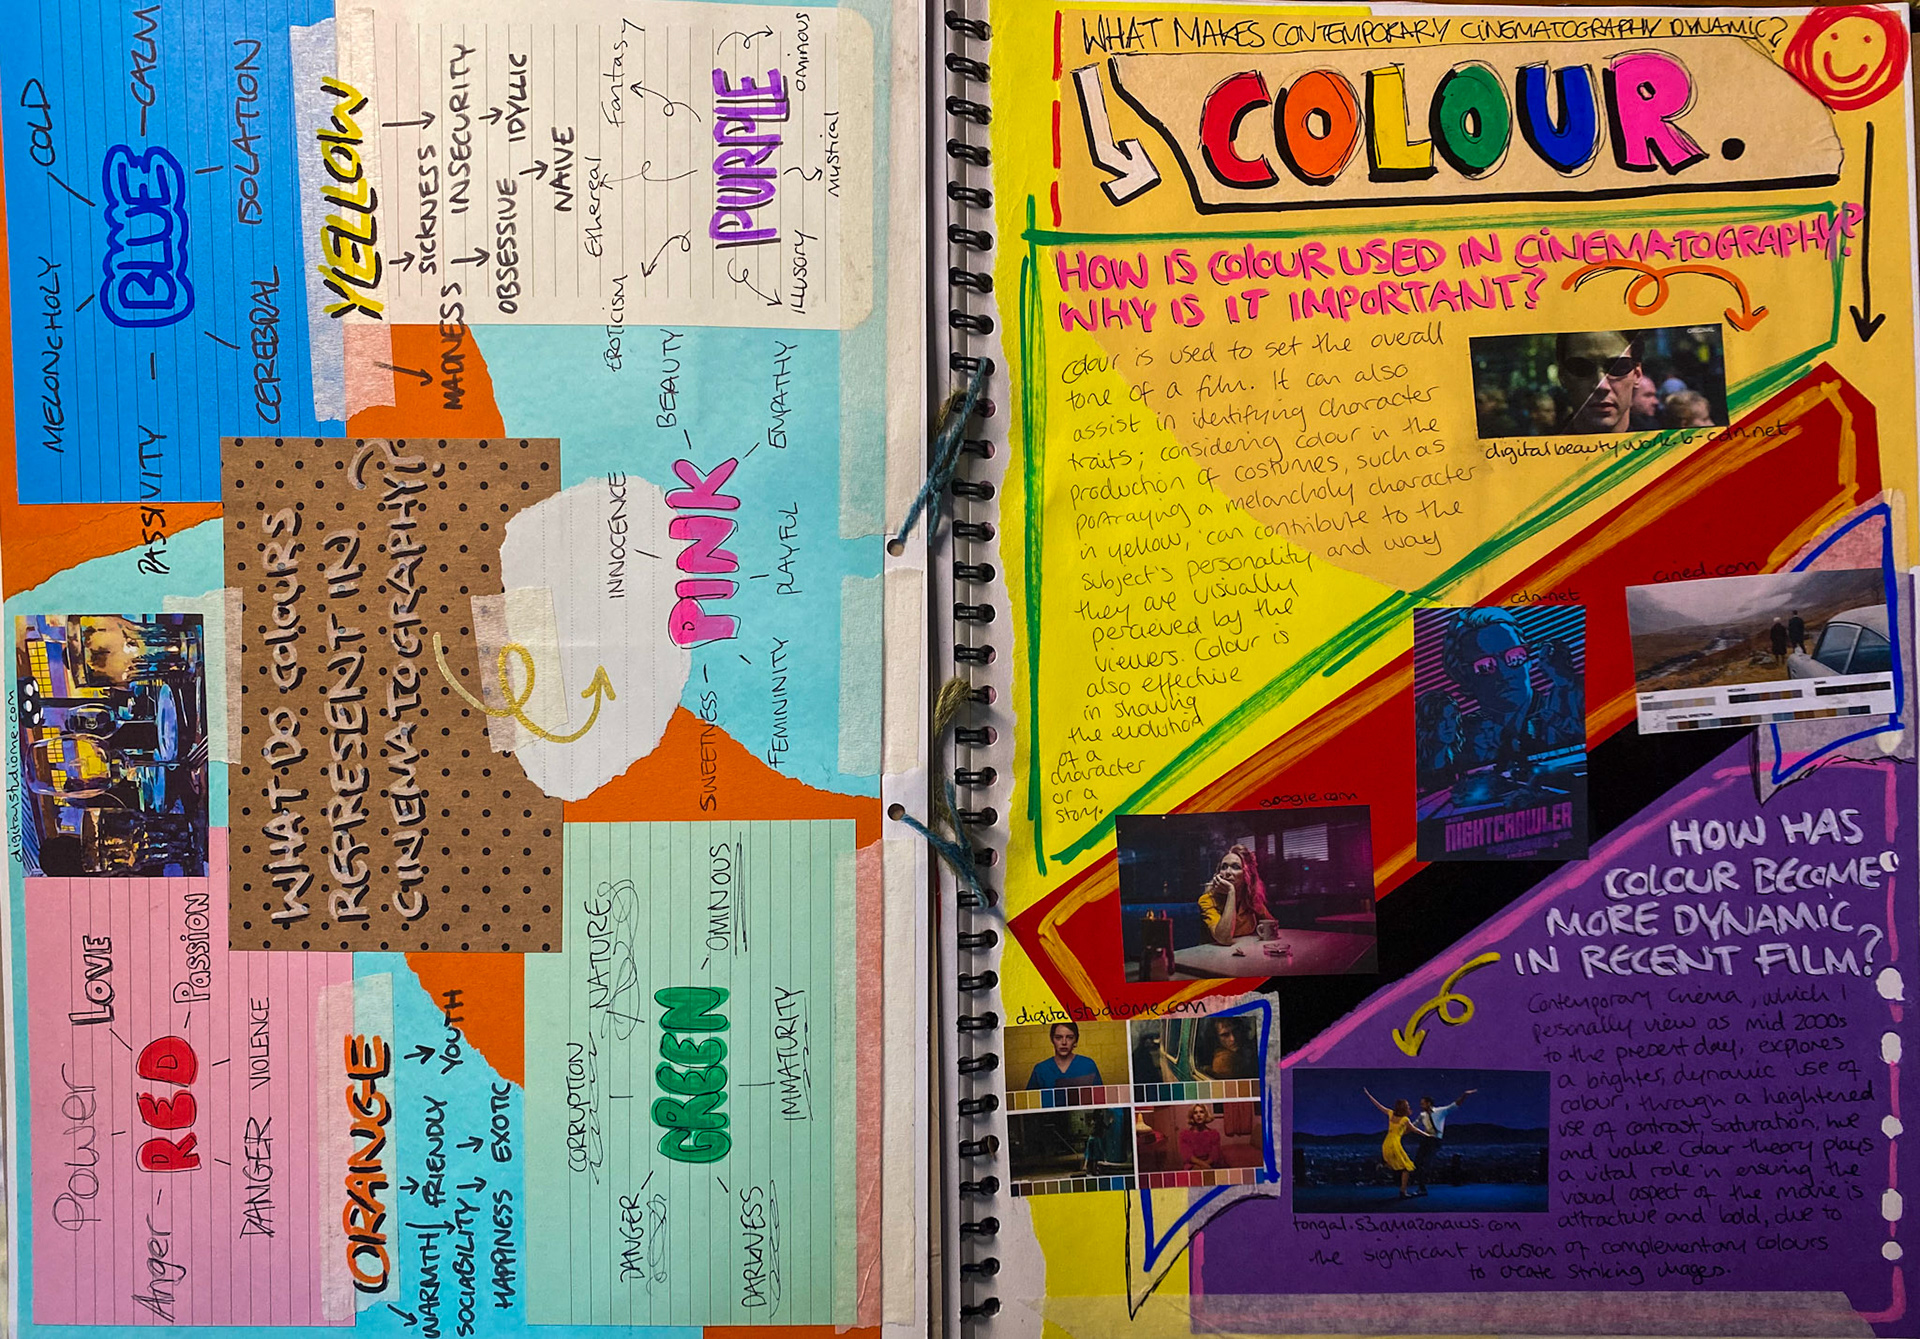 WHAT DO COLOURS
REPRESENT IN
CINEMATOGRAPHY?
digitalstudiome.com
Power
LOVE
Anger - RED - Passion
DANGER VIOLENCE
MELONCHOLY COLD
PASSIVITY - BLUE - CALM
CEREBRAL ISOLATION
YELLOW
SICKNESS
MADNESS INSECURITY
OBSESSIVE IDYLLIC
NAIVE
Ethereal Fantasy
PURPLE
illusory ominous
mystical
EROTICISM
INNOCENCE BEAUTY
SWEETNESS - PINK
FEMININITY PLAYFUL EMPATHY
ORANGE
WARMTH FRIENDLY YOUTH
SOCIABILITY
HAPPINESS EXOTIC
CORRUPTION NATURE
DANGER GREEN - OMINOUS
DARKNESS IMMATURITY
WHAT MAKES CONTEMPORARY CINEMATOGRAPHY DYNAMIC?
COLOUR.
HOW IS COLOUR USED IN CINEMATOGRAPHY?
WHY IS IT IMPORTANT?
Colour is used to set the overall
tone of a film. It can also
assist in identifying character
traits; considering colour in the
production of costumes, such as
portraying a melancholy character
in yellow, can contribute to the
subject's personality and way
they are visually
percieved by the
viewers. Colour is
also effective
in showing
the evolution
of a
character
or a
story.
ORIGINAL
digitalbeautywork.b-cdn.net
cined.com
cdn-net
NIGHTCRAWLER
google.com
digitalstudiome.com
HOW HAS
COLOUR BECOME
MORE DYNAMIC
IN RECENT FILM?
Contemporary cinema, which I
personally view as mid 2000s
to the present day, explores
a brighter, dynamic use of
colour, through a heightened
use of contrast, saturation, hue
and value. Colour theory plays
a vital role in ensuring the
visual aspect of the movie is
attractive and bold, due to
the significant inclusion of complementary colours
to create striking images.
tongal.s3.amazonaws.com